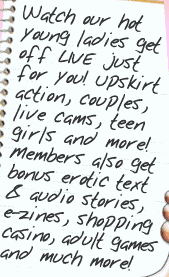 Watch our hot
young ladies get
off LIVE just
for you! Upskirt
action, couples,
live cams, teen
girls and more!
members also get
bonus erotic text
& audio stories,
e-zines, shopping
casino, adult games
and much more!